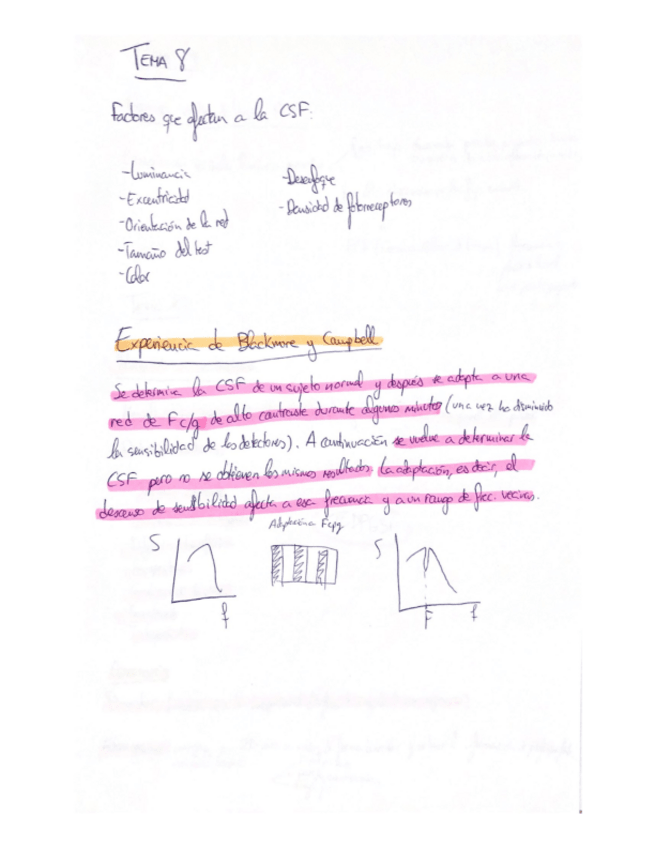 TEMA 8
Factores que afectan a la CSF:
-Luminancia
-Excentricidad
-Orientación de la red
-Tamaño del test
-Color
-Desenfoque
-Densidad de fotorreceptores
Experiencia de Blackmore y Campbell
Se determina la CSF de un sujeto normal y después se adapta a una
red de F c/g de alto contraste durante algunos minutos (una vez ha disminuido
la sensibilidad de los detectores). A continuación se vuelve a determinar la
CSF pero no se obtienen los mismos resultados. La adaptación, es decir, el
descenso de sensibilidad afecta a esa frecuencia y a un rango de frec. vecinas.
Adaptación a Fcpg
S
f
S
F
f